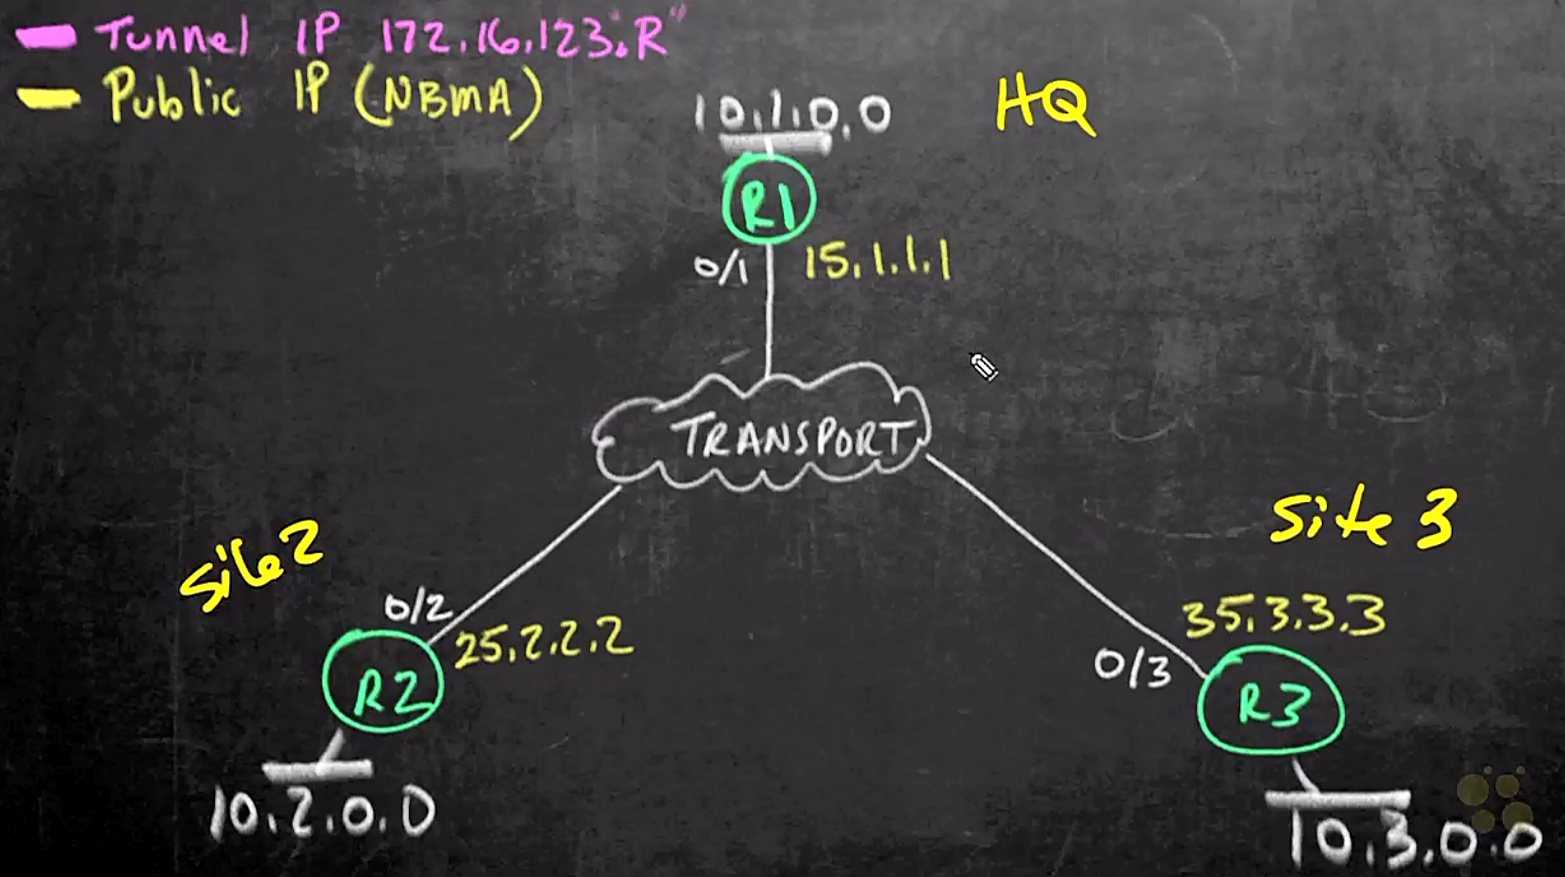 Tunnel IP 172.16.123."R"
Public IP (NBMA)
HQ
10.1.0.0
R1
0/1
15.1.1.1
TRANSPORT
Site 2
Site 3
0/2
25.2.2.2
R2
10.2.0.0
35.3.3.3
0/3
R3
10.3.0.0